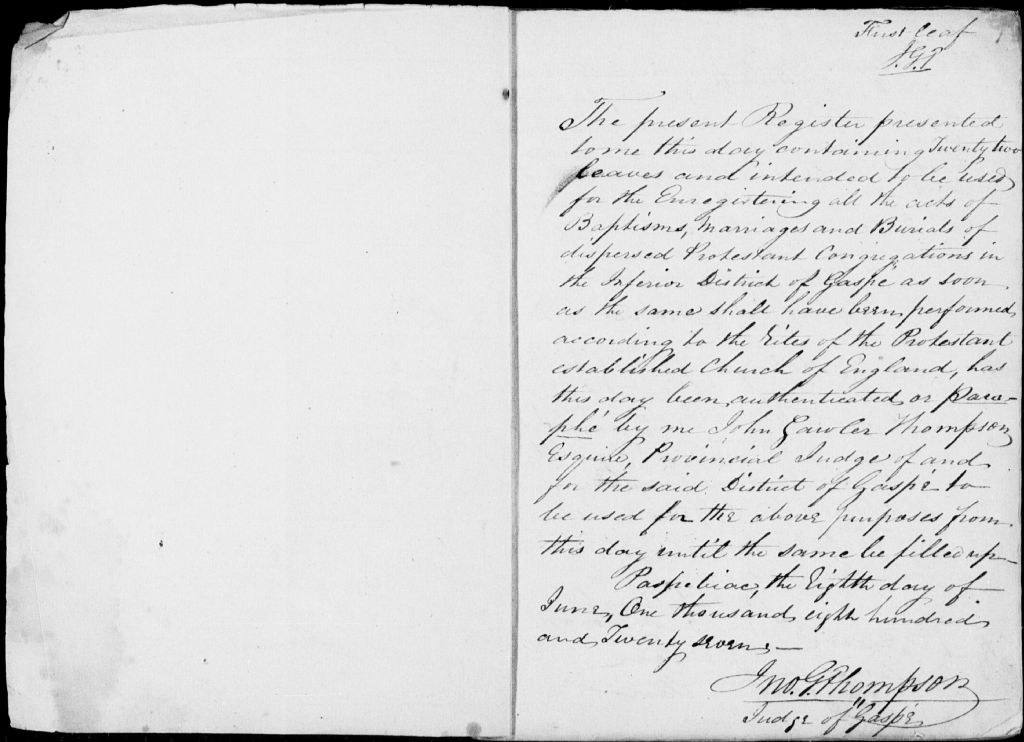 First leaf
J.G.T
The present Register presented
to me this day containing Twenty two
leaves and intended to be used
for the Enregistering all the acts of
Baptisms, Marriages and Burials of
dispersed Protestant Congregations in
the Inferior District of Gaspé as soon
as the same shall have been performed
according to the Rites of the Protestant
established Church of England, has
this day been authenticated or para-
phé by me John Gawler Thompson
Esquire, Provincial Judge of and
for the said District of Gaspé to
be used for the above purposes from
this day until the same be filled up
Paspebiac, the Eighth day of
June, One thousand eight hundred
and Twenty seven,—
Jno. G. Thompson
Judge of Gaspé